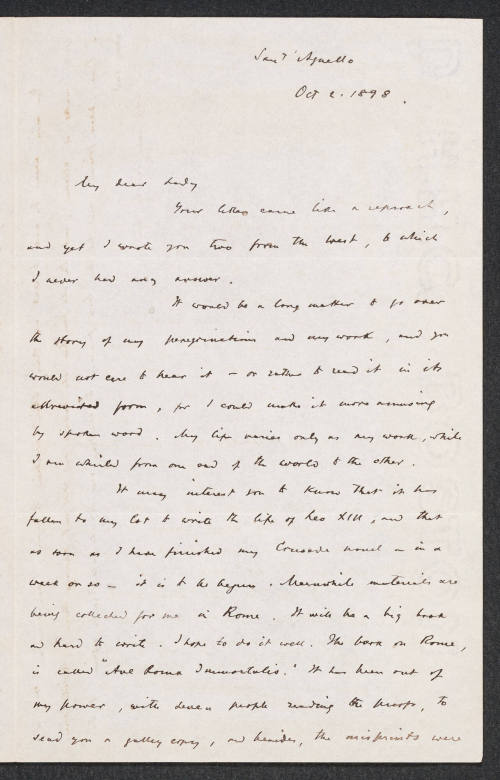 Sant' Agnello
Oct 2. 1898.
My dear Lady
Your letter came like a reproach,
and yet I wrote you two from the west, to which
I never had any answer.
It would be a long matter to go over
the story of my peregrinations and my work, and you
would not care to hear it — or rather to read it in its
abbreviated form, for I could make it more amusing
by spoken word. My life varies only as my work, while
I am whirled from one end of the world to the other.
It may interest you to know that it has
fallen to my lot to write the life of Leo XIII, and that
as soon as I have finished my Crusade novel — in a
week or so — it is to be begun. Meanwhile materials are
being collected for me in Rome. It will be a big book
and hard to write. I hope to do it well. The book on Rome,
is called "Ave Roma Immortalis." It has been out of
my power, with seven people reading the proofs, to
send you a galley copy, and besides, the misprints were